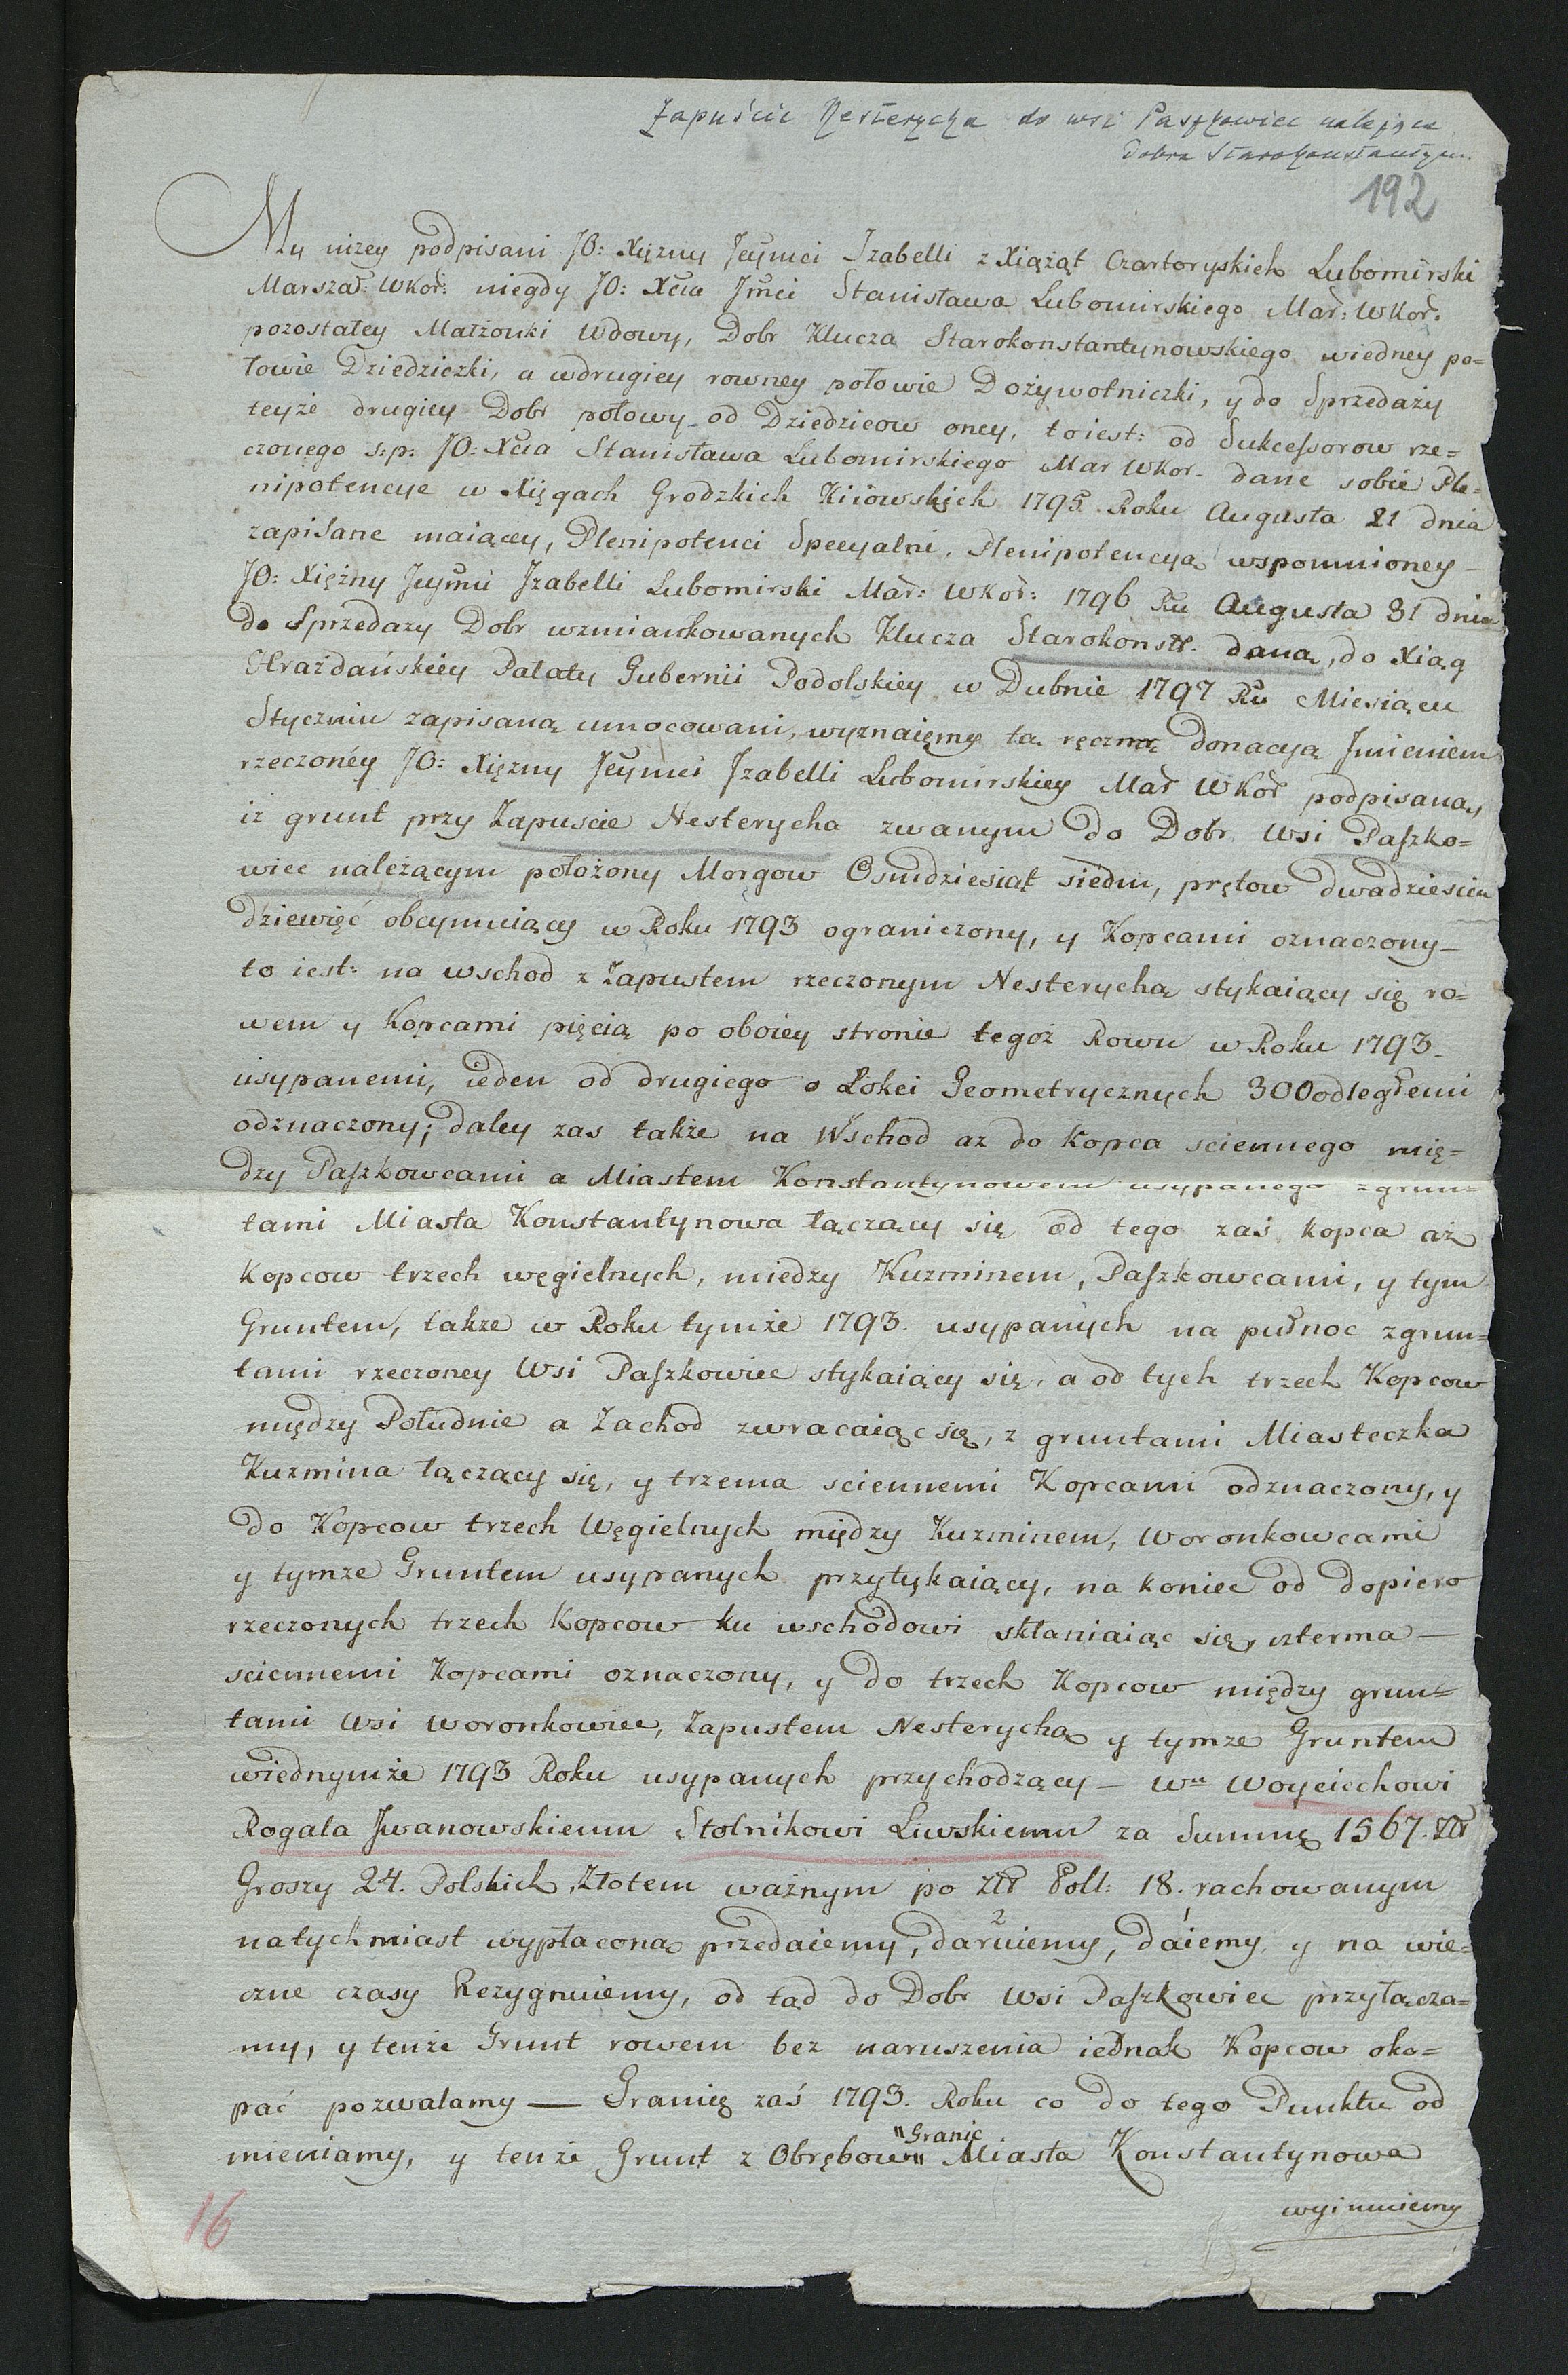 Zapuście Nesterycha do wsi Paszkowiec należące
dobra Starokonstantyn.
192
My niżey podpisani JO: Xiężny Jeymci Izabelli z Xiążąt Czartoryskich Lubomirski
Marszał: WKoř: niegdy JO: Xcia Jmci Stanisława Lubomirskiego Mař: WKoř:
pozostałey Małżonki Wdowy, Dobr Klucza Starokonstantynowskiego wiedney po=
łowie Dziedziczki, a wdrugiey rowney połowie Dożywotniczki, y do Sprzedaży
teyże drugiey Dobr połowy od Dziedzicow oney, to iest: od Sukcessorow rze=
czonego s:p: JO: Xcia Stanisława Lubomirskiego Mar WKor. dane sobie Ple=
nipotencye w Xięgach Grodzkich Kiiowskich 1795 Roku Augusta 21 dnia
zapisane maiącey, Plenipotenci Specyalni, Plenipotencyą wspomnioney
JO: Xiężny Jeymci Izabelli Lubomirski Mař: WKoř: 1796 Ru Augusta 31 dnia
do Sprzedazy Dobr wzmiankowanych Klucza Starokonstt. daną, do Xiąg
Hrażdańskiey Pałaty Gubernii Podolskiey w Dubnie 1797 Ru Miesiącu
Styczniu zapisaną umocowani, wyznaięmy tą ręczną donacyą Imieniem
rzeczonéy JO: Xiężny Jeymci Izabelli Lubomirskiey Mař WKoř podpisaną,
iż grunt przy Zapuscie Nesterycha zwanym do Dobr Wsi Paszko=
wiec należącym położony Morgow Osmdziesiąt siedm, prętow dwadziescia
dziewięć obeymuiący w Roku 1793 ograniczony, y Kopcami oznaczony
to iest: na wschod z Zapustem rzeczonym Nesterychą stykaiący się ro=
wem y Kopcami pięcią po oboiey stronie tegoż Rowu w Roku 1793.
usypanemi, ieden od drugiego o Łokci Geometrycznych 300 odległemi
odznaczony; daley zas także na Wschod aż do Kopca sciennego mię=
dzy Paszkowcami a Miastem Konstantynowem usypanego zgrun=
tami Miasta Konstantynowa łączący się od tego zaś kopca aż
Kopcow trzech węgielnych, miedzy Kuzminem, Paszkowcami, y tym
Gruntem, także w Roku tymże 1793. usypanych na pułnoc zgrun=
tami rzeczoney Wsi Paszkowiec stykaiący się, a od tych trzech Kopcow
między Południe a Zachod zwracaiąc się, z gruntami Miasteczka
Kuzmina łączący się, y trzema sciennemi Kopcami odznaczony, y
do Kopcow trzech Węgielnych między Kuzminem, Woronkowcami
y tymże Gruntem usypanych przytykaiący, na koniec od dopiero
rzeczonych trzech Kopcow ku wschodowi skłaniaiąc się, czterma
sciennemi Kopcami oznaczony, y do trzech Kopcow między grun=
tami Wsi Woronkowiec, Zapustem Nesterychą y tymże Gruntem
wiednymże 1793 Roku usypanych przychodzący — Wu Woyciechowi
Rogala Iwanowskiemu Stolnikowi Liwskiemu za Summę 1567. Złł
Groszy 24. Polskich, Złotem ważnym po Złł Poll: 18. rachowanym
natychmiast wypłaconą przedaiemy, 2 daruiemy, 1 daiemy y na wie=
czne czasy Rezygnuiemy, od tąd do Dobr Wsi Paszkowiec przyłącza=
my, y tenże Grunt rowem bez naruszenia iednak Kopcow oko=
pać pozwalamy — Granię zaś 1793. Roku co do tego Punktu od
mieniamy, y tenże Grunt z Obrębow "Granic" Miasta Konstantynowa
wyimuiemy
16